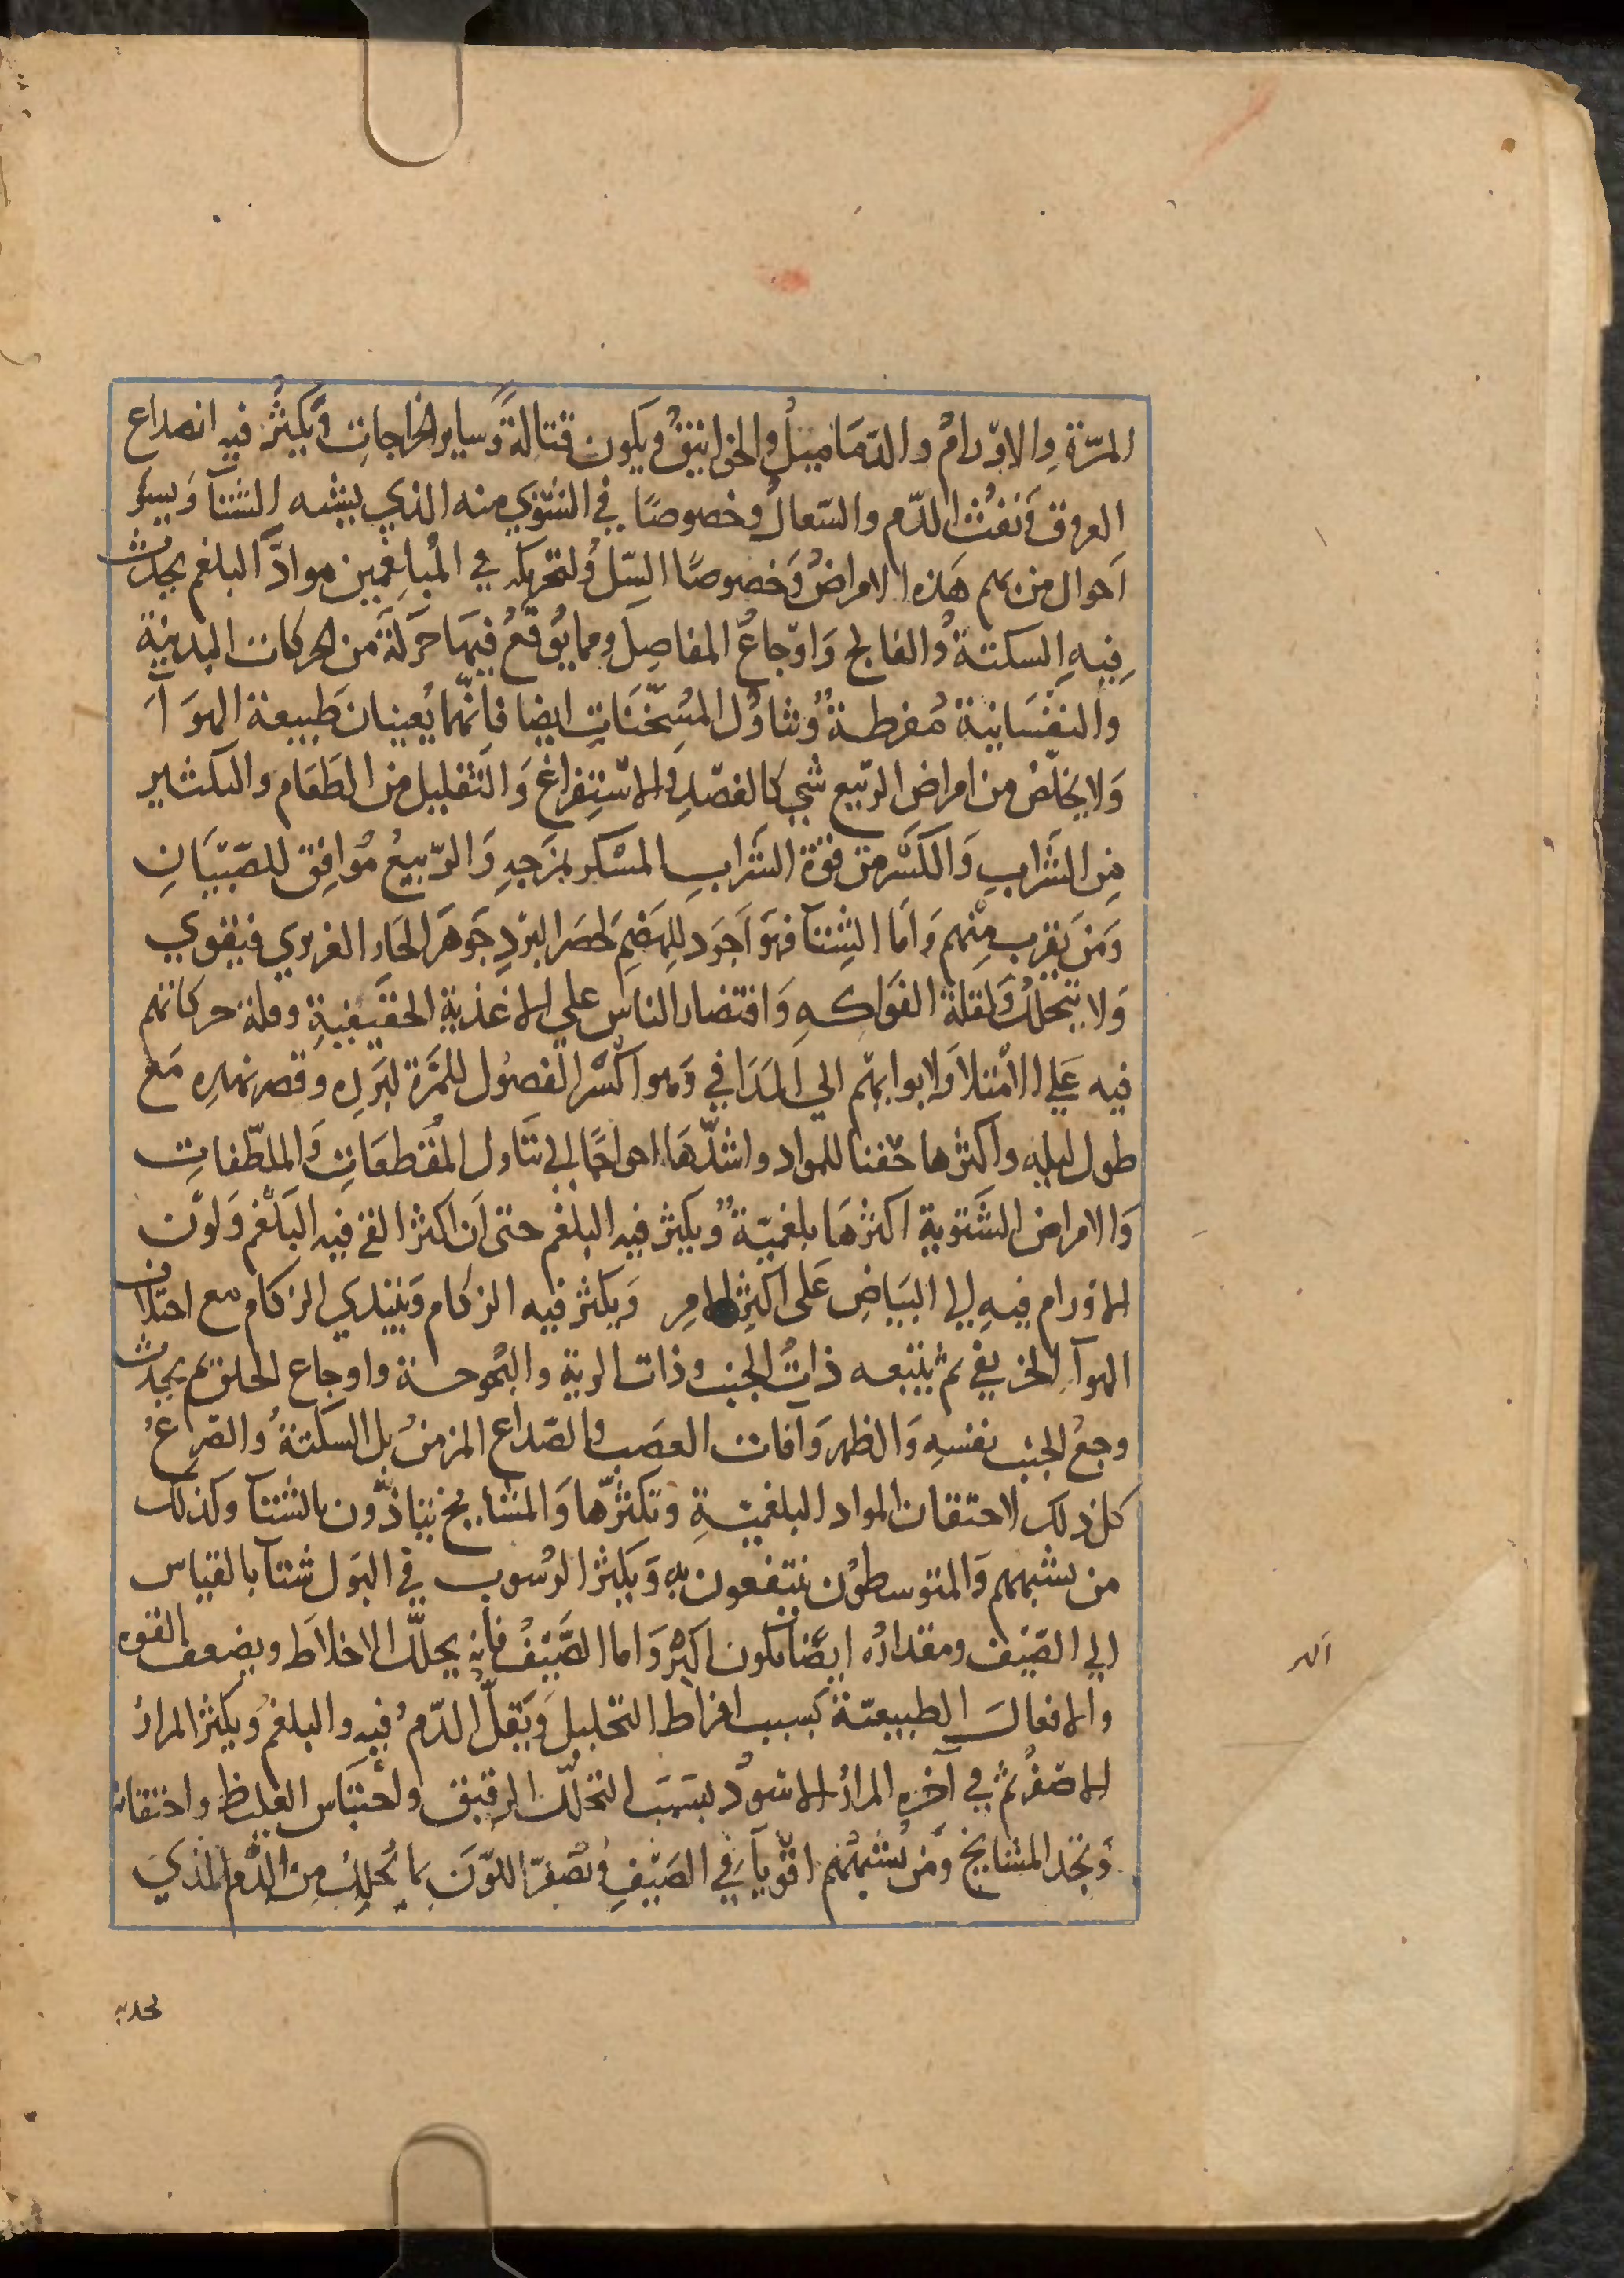 المرّة والاورام والدّماميل والخوانيق ويكون قتالة وساير الخراجات ويكثر فيه انصداع
العروق ونفث الدّم والسّعال وخصوصًا في الشتوي منه الذي يشبه الشتآ ويسؤ
احوال من بهم هذه الامراض وخصوصًا السّل ولتحريكه في المبلغمين موادّ البلغم يحدث
فيه السكتة والفالج واوجاع المفاصل ومما يوقع فيها حركة من الحركات البدنية
والنفسانية مفرطة وتناول المسخّنات ايضا فانّهما يعينان طبيعة الهوآ
ولا يخلّص من امراض الربيع شي كالفصد والاستفراغ والتقليل من الطعام والتكثير
من الشراب والكسر من قوّة الشراب المسكر بمزجه والرّبيع موافق للصّبيان
ومن يقرب منهم واما الشتآ فهو اجود للهضم لحصر البرد جوهر الحار الغريزي فيقوي
ولا يتحلل ولقلة الفواكه واقتصار الناس علي الاغذية الحقيقية وقلة حركاتهم
فيه علي الامتلا ولا بوابهم الي المدافي وهو اكسر الفصول للمرّة لبرده وقصر نهاره مع
طول ليله واكثرها حقنا للمواد واشدّها احواجًا الي تناول المقطعات والملطّفات
والامراض الشتوية اكثرها بلغميّة ويكثر فيه البلغم حتى ان اكثر القي فيه البلغم ولون
الاورام فيه الي البياض على اكثر الامر ويكثر فيه الزكام ويبتدي الزكام مع اختلاف
الهوآ الخريفي ثم يتبعه ذات الجنب وذات الرية والبحوحة واوجاع الحلق ثم يحدث
وجع الجنب نفسه والظهر وآفات العصب والصّداع المزمن بل السكتة والصرع
كل ذلك لاحتقان المواد البلغميّة وتكثرّها والمشايخ يتاذّون بالشتآ وكذلك
من يشبههم والمتوسطون ينتفعون به ويكثر الرسوب في البول شتآ بالقياس
الي الصّيف ومقداره ايضًا يكون اكثر واما الصّيف فانه يحلّل الاخلاط ويضعف القوه
والافعال الطبيعيّة بسبب افراط التحليل ويقلّ الدّم فيه والبلغم ويكثر المرار
الاصفر ثم في آخره المرار الاسود بسبب التحلّل الرقيق واحتباس الغليظ واحتقانه
وتجد المشايخ ومن يشبههم اقويآ في الصّيف وتصفرّ اللّون بما تحلل من الدّم الذي